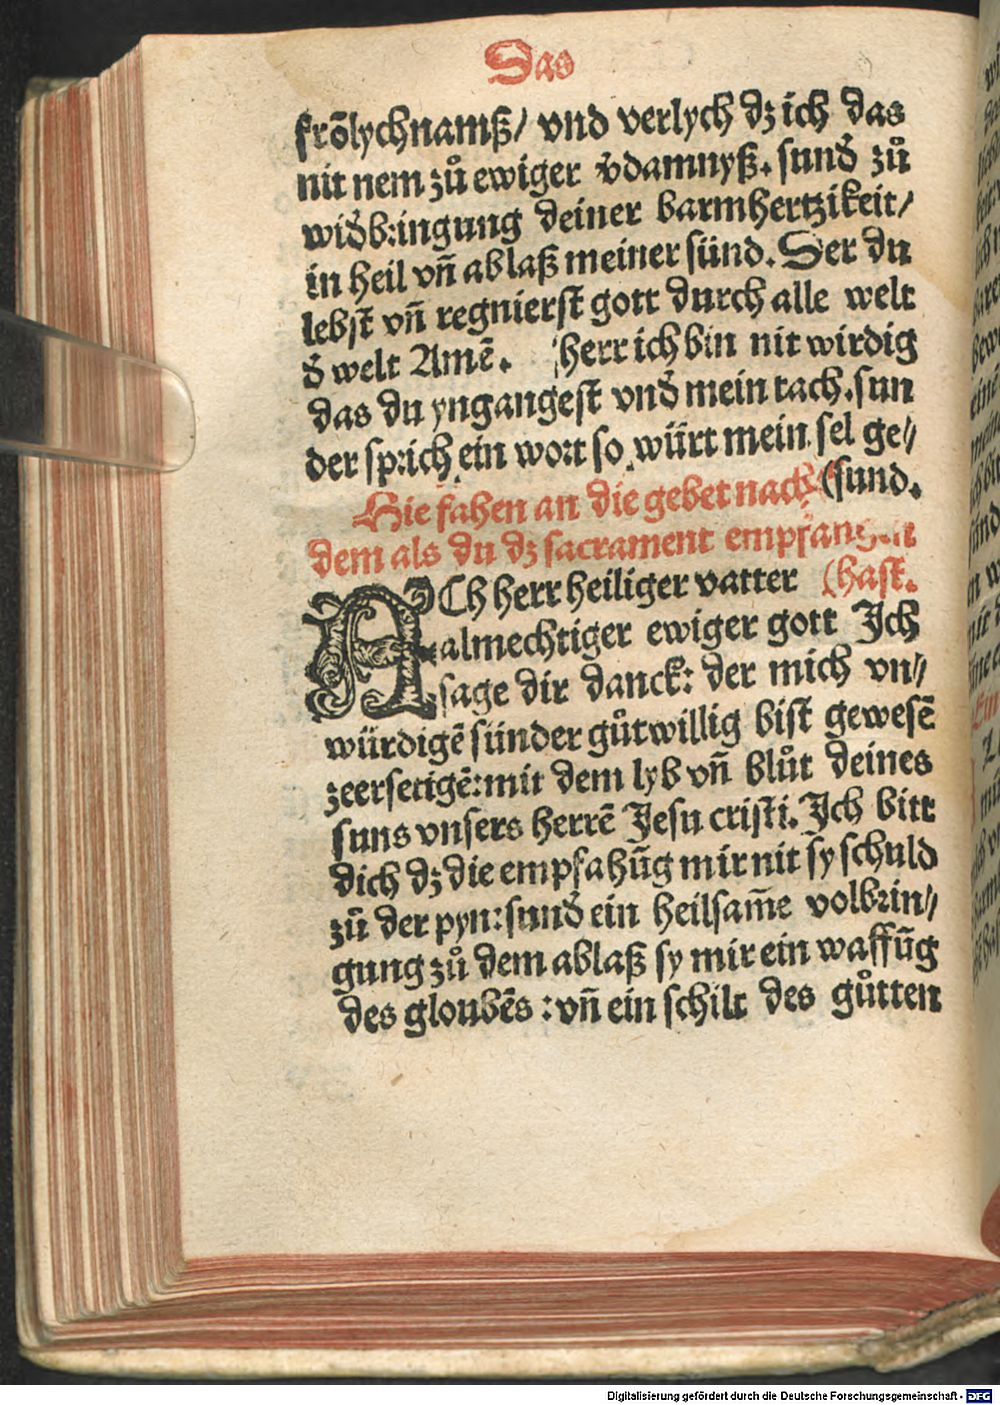 Das
frõlychnamß/ vnd verlych dꝫ ich das
nit nem zů ewiger v̄damnyß. sund̄ zů
wid̄bꝛingung deiner barmhertzikeit/
in heil vn̄ ablaß meiner sünd. Der du
lebst vn̄ regnierst gott durch alle welt
d̄ welt Amē. Herr ich bin nit wirdig
das du yngangest vnd̄ mein tach. sun
der spꝛich ein woꝛt so würt mein sel ge⸗
(sund.
Hie fahen an die gebet nach
dem als du dꝫ sacrament empfangen
(hast.
ACh herr heiliger vatter
almechtiger ewiger gott Ich
sage dir danck: der mich vn⸗
würdigē sünder gůtwillig bist gewesē
zeersetigē: mit dem lyb vn̄ blůt deines
suns vnsers herrē Jesu cristi. Ich bitt
dich dꝫ die empfahūg mir nit sy schuld
zů der pyn: sund̄ ein heilsam̄e volbꝛin⸗
gung zů dem ablaß sy mir ein waffūg
des gloubēs : vn̄ ein schilt des gůtten
Digitalisierung gefördert durch die Deutsche Forschungsgemeinschaft - DFG